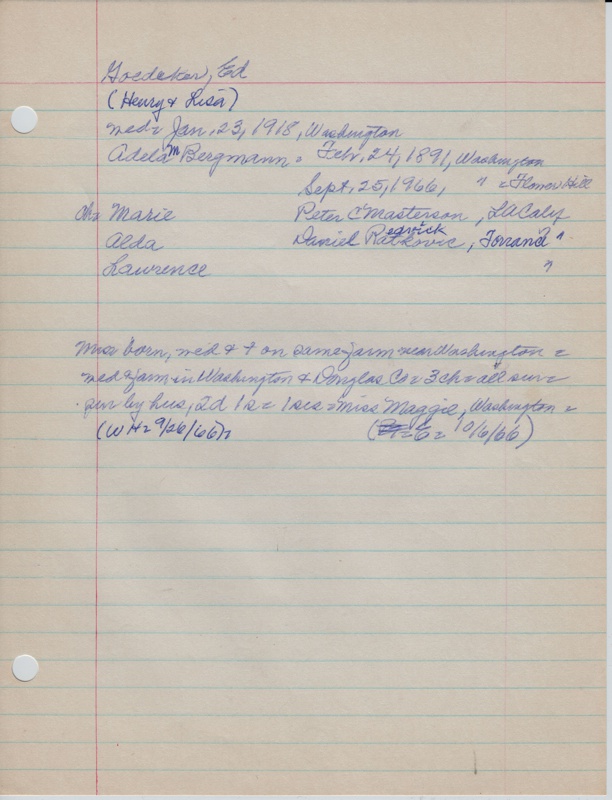 Goedeker, Ed
(Henry & Lisa)
med= Jan. 23, 1918, Washington
Adela M Bergmann = Feb. 24, 1891, Washington
Sept. 25, 1966, " = Flower Hill
ch= Marie Peter C Masterson, LA Calif
Alda Daniel Ratkovic, edwick Torrance "
Lawrence "
born, med & † on same farm near Washington =
med & farm in Washington & Douglas Co = 3 ch = all sur=
sur by hus, 2d 1s = 1 sis = Miss Maggie, Washington =
(WH= 9/26/66)= (= E= 10/6/66)